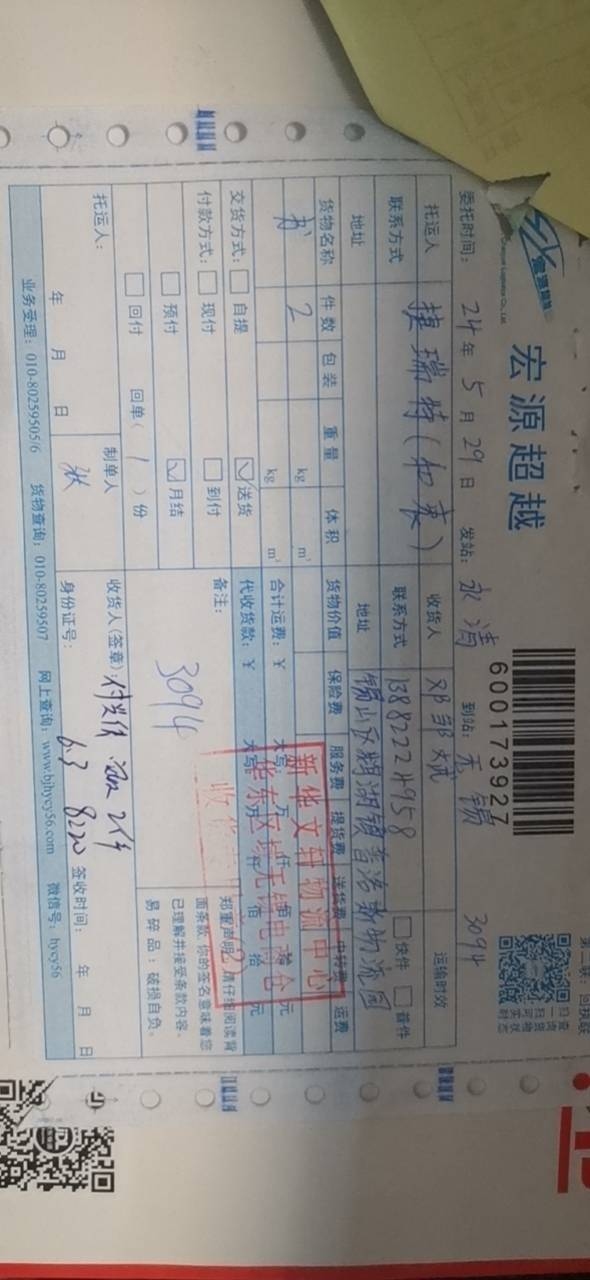 宏源超越
600173927
第二联：回执联
3094
委托时间：24年5月29日 发站：永清 到站：无锡
托运人 捷瑞特（和衷） 收货人 邓邹斌 运输时效
联系方式 联系方式 13822224958 快件 普件
地址 地址 锡山区鹅湖镇
货物名称 件数 包装 重量 体积 货物价值 保险费 服务费 提货费 送货费 中转费 运费
书 2 kg m³
kg m³ 合计运费：¥ 大写 万 仟 佰 拾 元
交货方式： 自提 送货 代收货款：¥ 大写 万 仟 佰 拾 元
付款方式： 现付 到付 备注：
预付 月结
回付 回单（1）份
3094
新华文轩物流中心
华东区域无锡电商仓
收货
郑重声明：请仔细阅读背
面条款，你的签名意味着您
已理解并接受条款内容。
易碎品：破损自负。
托运人： 制单人 收货人（签章）：
年 月 日 张 身份证号： 6.3 8220 签收时间： 年 月 日
业务受理：010-80259505/6 货物查询：010-80259507 网上查询：www.bjhycy56.com 微信号：hycy56